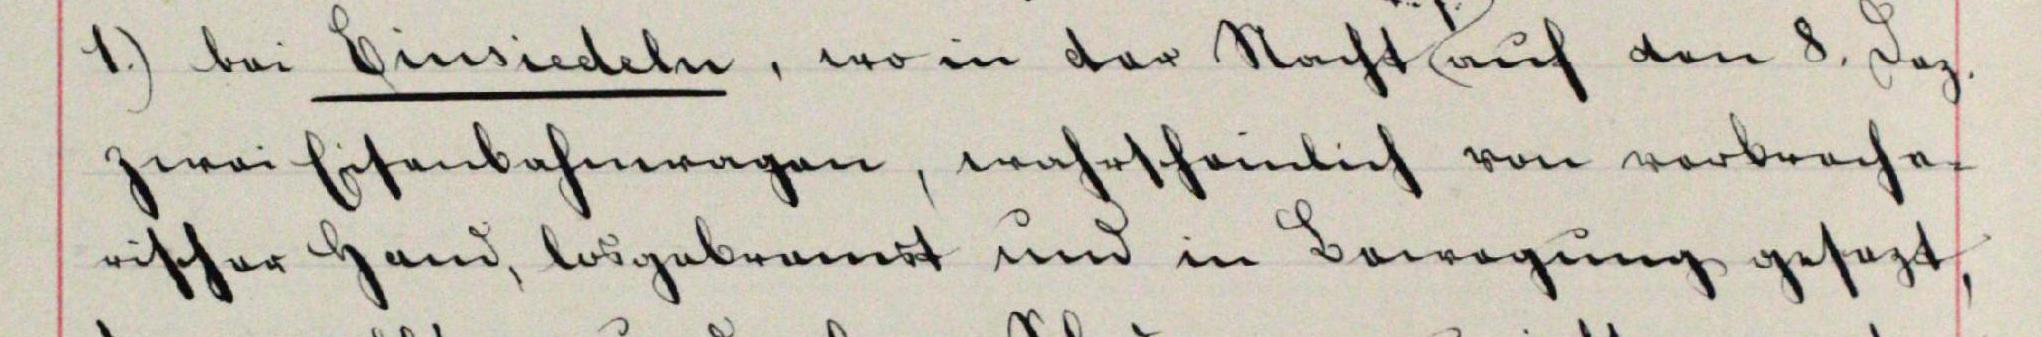 1.) bei Einsiedeln, wo in der Nacht auf den 8. Dez.
zwei Eisenbahnwagen, wahrscheinlich von verbreche-
rischer Hand, losgebremst und in Bewegung gesezt,